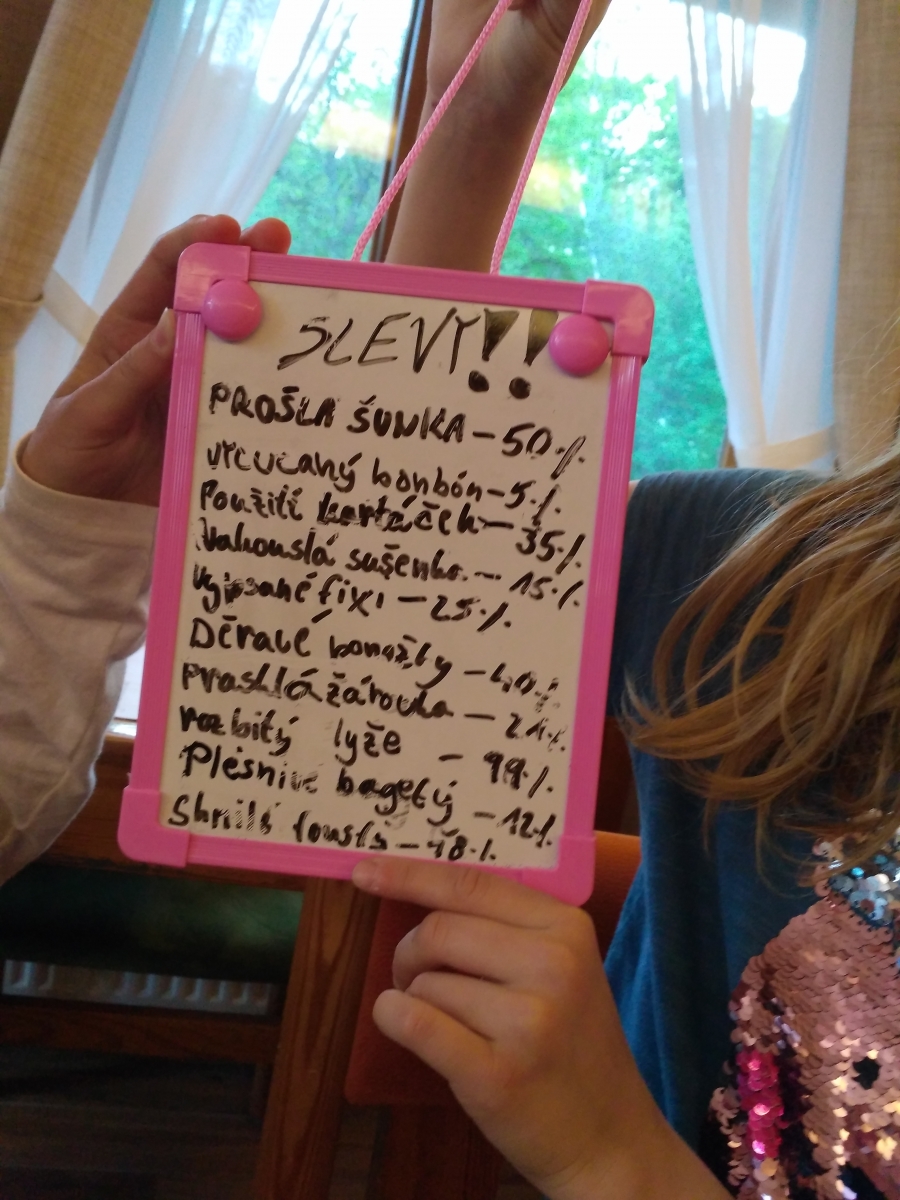 SLEVY!!
PROŠLÁ ŠUNKA - 50%
vycucaný bonbón - 5%
Použitý kartáček - 35%
Nakouslá sušenka - 15%
Vypsané fixi - 25%
Děravé ponožky - 40%
Prasklá žárovka - 21%
rozbitý lyže - 99%
Plesnivé bagety - 12%
Shnilí tousty - 48%